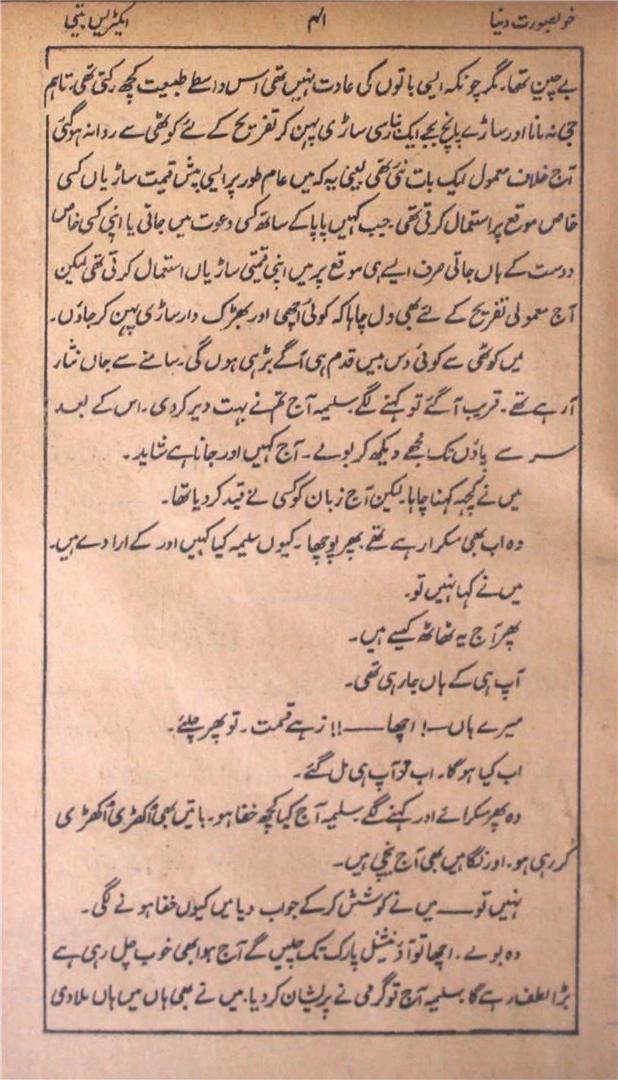 خوبصورت دنیا
الہم
ایکٹریس بنتی
بے چین تھا۔ مگر چونکہ ایسی باتوں کی عادت نہیں تھی اس واسطے طبیعت کچھ رکتی تھی۔ تاہم
جی نہ مانا اور ساڑے پانچ بجے ایک بنارسی ساڑی پہن کر تفریح کے لئے کوٹھی سے روانہ ہوگئی
آج خلاف معمول ایک بات نئی تھی یعنی یہ کہ میں عام طور پر ایسی بیش قیمت ساڑیاں کسی
خاص موقع پر استعمال کرتی تھی۔ جب کہیں پاپا کے ساتھ کسی دعوت میں جاتی یا اپنی کسی خاص
دوست کے ہاں جاتی صرف ایسے ہی موقع پر میں اپنی قیمتی ساڑیاں استعمال کرتی تھی لیکن
آج معمولی تفریح کے لئے بھی دل چاہا کہ کوئی اچھی اور بھڑک دار ساڑی پہن کر جاؤں۔
میں کوٹھی سے کوئی دس بیس قدم ہی آگے بڑہی ہوں گی۔ سامنے سے جاں نثار
آرہے تھے۔ قریب آگئے تو کہنے لگے سلیمہ آج تم نے بہت دیر کردی۔ اس کے بعد
سر سے پاؤں تک مجھے دیکھ کر بولے۔ آج کہیں اور جانا ہے شاید۔
میں نے کچھ کہنا چاہا۔ لیکن آج زبان کو کسی نے قید کردیا تھا۔
وہ اب بھی مسکرا رہے تھے پھر پوچھا۔ کیوں سلیمہ کیا کہیں اور کے ارادے ہیں۔
میں نے کہا نہیں تو۔
پھر آج یہ ٹھاٹھ کیسے ہیں۔
آپ ہی کے ہاں جارہی تھی۔
میرے ہاں۔! اچھا ——!! زہے قسمت۔ تو پھر چلئے۔
اب کیا ہوگا۔ اب تو آپ ہی مل گئے۔
وہ پھر مسکرائے اور کہنے لگے سلیمہ آج کیا کچھ خفا ہو۔ باتیں بھی اُکھڑی اُکھڑی
کررہی ہو۔ اور نگاہیں بھی آج نیچی ہیں۔
نہیں تو —— میں نے کوشش کرکے جواب دیا میں کیوں خفا ہونے لگی۔
وہ بولے۔ اچھا تو آؤ نیشنل پارک تک چلیں گے آج ہوا بھی خوب چل رہی ہے
بڑا لطف رہے گا۔ سلیمہ آج تو گرمی نے پریشان کردیا۔ میں نے بھی ہاں میں ہاں ملادی